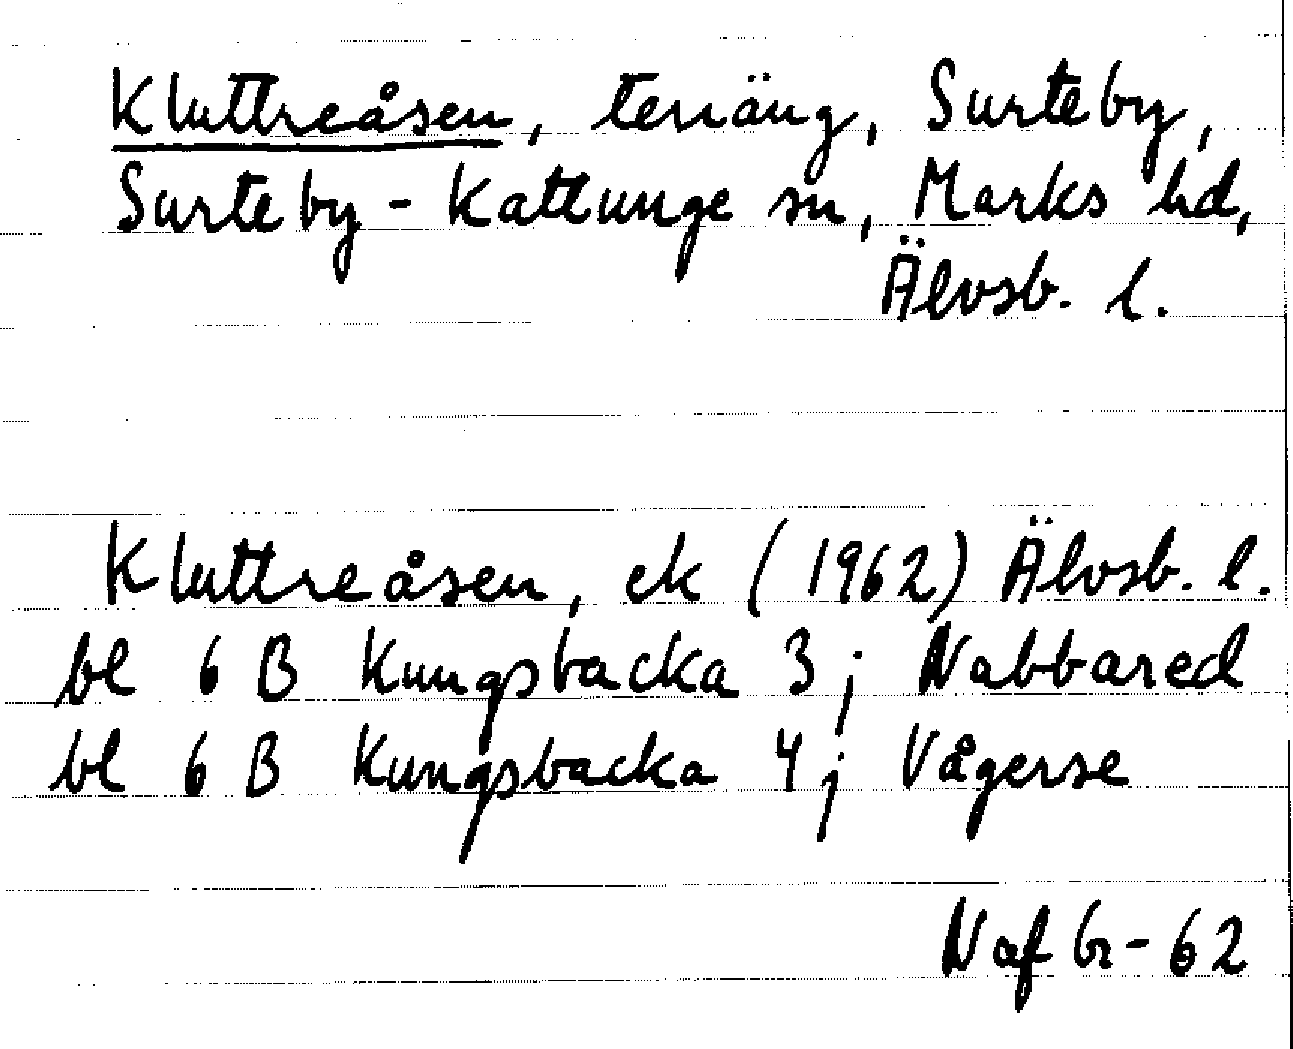 Kluttreåsen, terräng, Surteby,
Surteby-Kattunge sn, Marks hd,
Älvsb. l.
Kluttreåsen, ek (1962) Älvsb. l.
bl 6 B Kungsbacka 3 j Nabbared
bl 6 B Kungsbacka 4 j Vågerse
Naf br-62